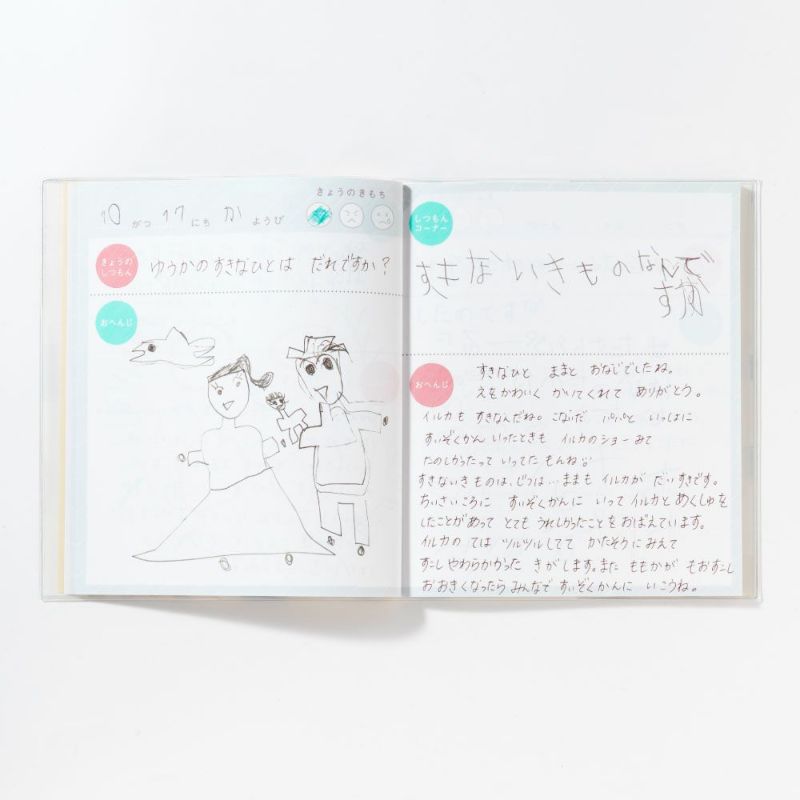 きょうのきもち
10 がつ 17 にち か ようび
きょうの
しつもん
ゆうかのすきなひとは だれですか？
おへんじ
しつもん
コーナー
すきないきものなんで
すか
おへんじ
すきなひと ままと おなじでしたね。
えをかわいく かいてくれて ありがとう。
イルカも すきなんだね。こないだ パパと いっしょに
すいぞくかん いったときも イルカのショー みて
たのしかったって いってたもんね
すきないきものは、じつは…ままも イルカが だいすきです。
ちいさいころに すいぞくかんに いって イルカと あくしゅを
したことがあって とても うれしかったことを おぼえています。
イルカの ては ツルツルしてて かたそうにみえて
すこしやわらかかった きがします。また ももかが もおすこし
おおきくなったら みんなで すいぞくかんに いこうね。